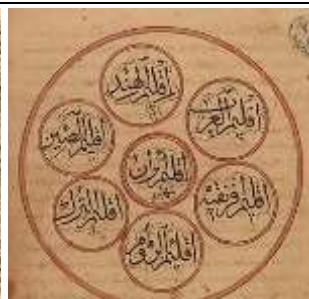 اقليم الهند
اقليم العرب
اقليم
اقليم الروم
اقليم الترك
اقليم الصين
اقليم ايران
شهر